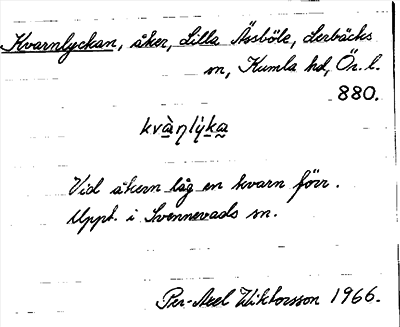 Kvarnlyckan, åker, Lilla Ässböle, Lerbäcks
sn, Kumla hd, Ör. l.
880.
kvà̱ṇlẏ́ka̰
Vid åkern låg en kvarn förr.
Uppt. i Svennevads sn.
Per-Axel Wiktorsson 1966.